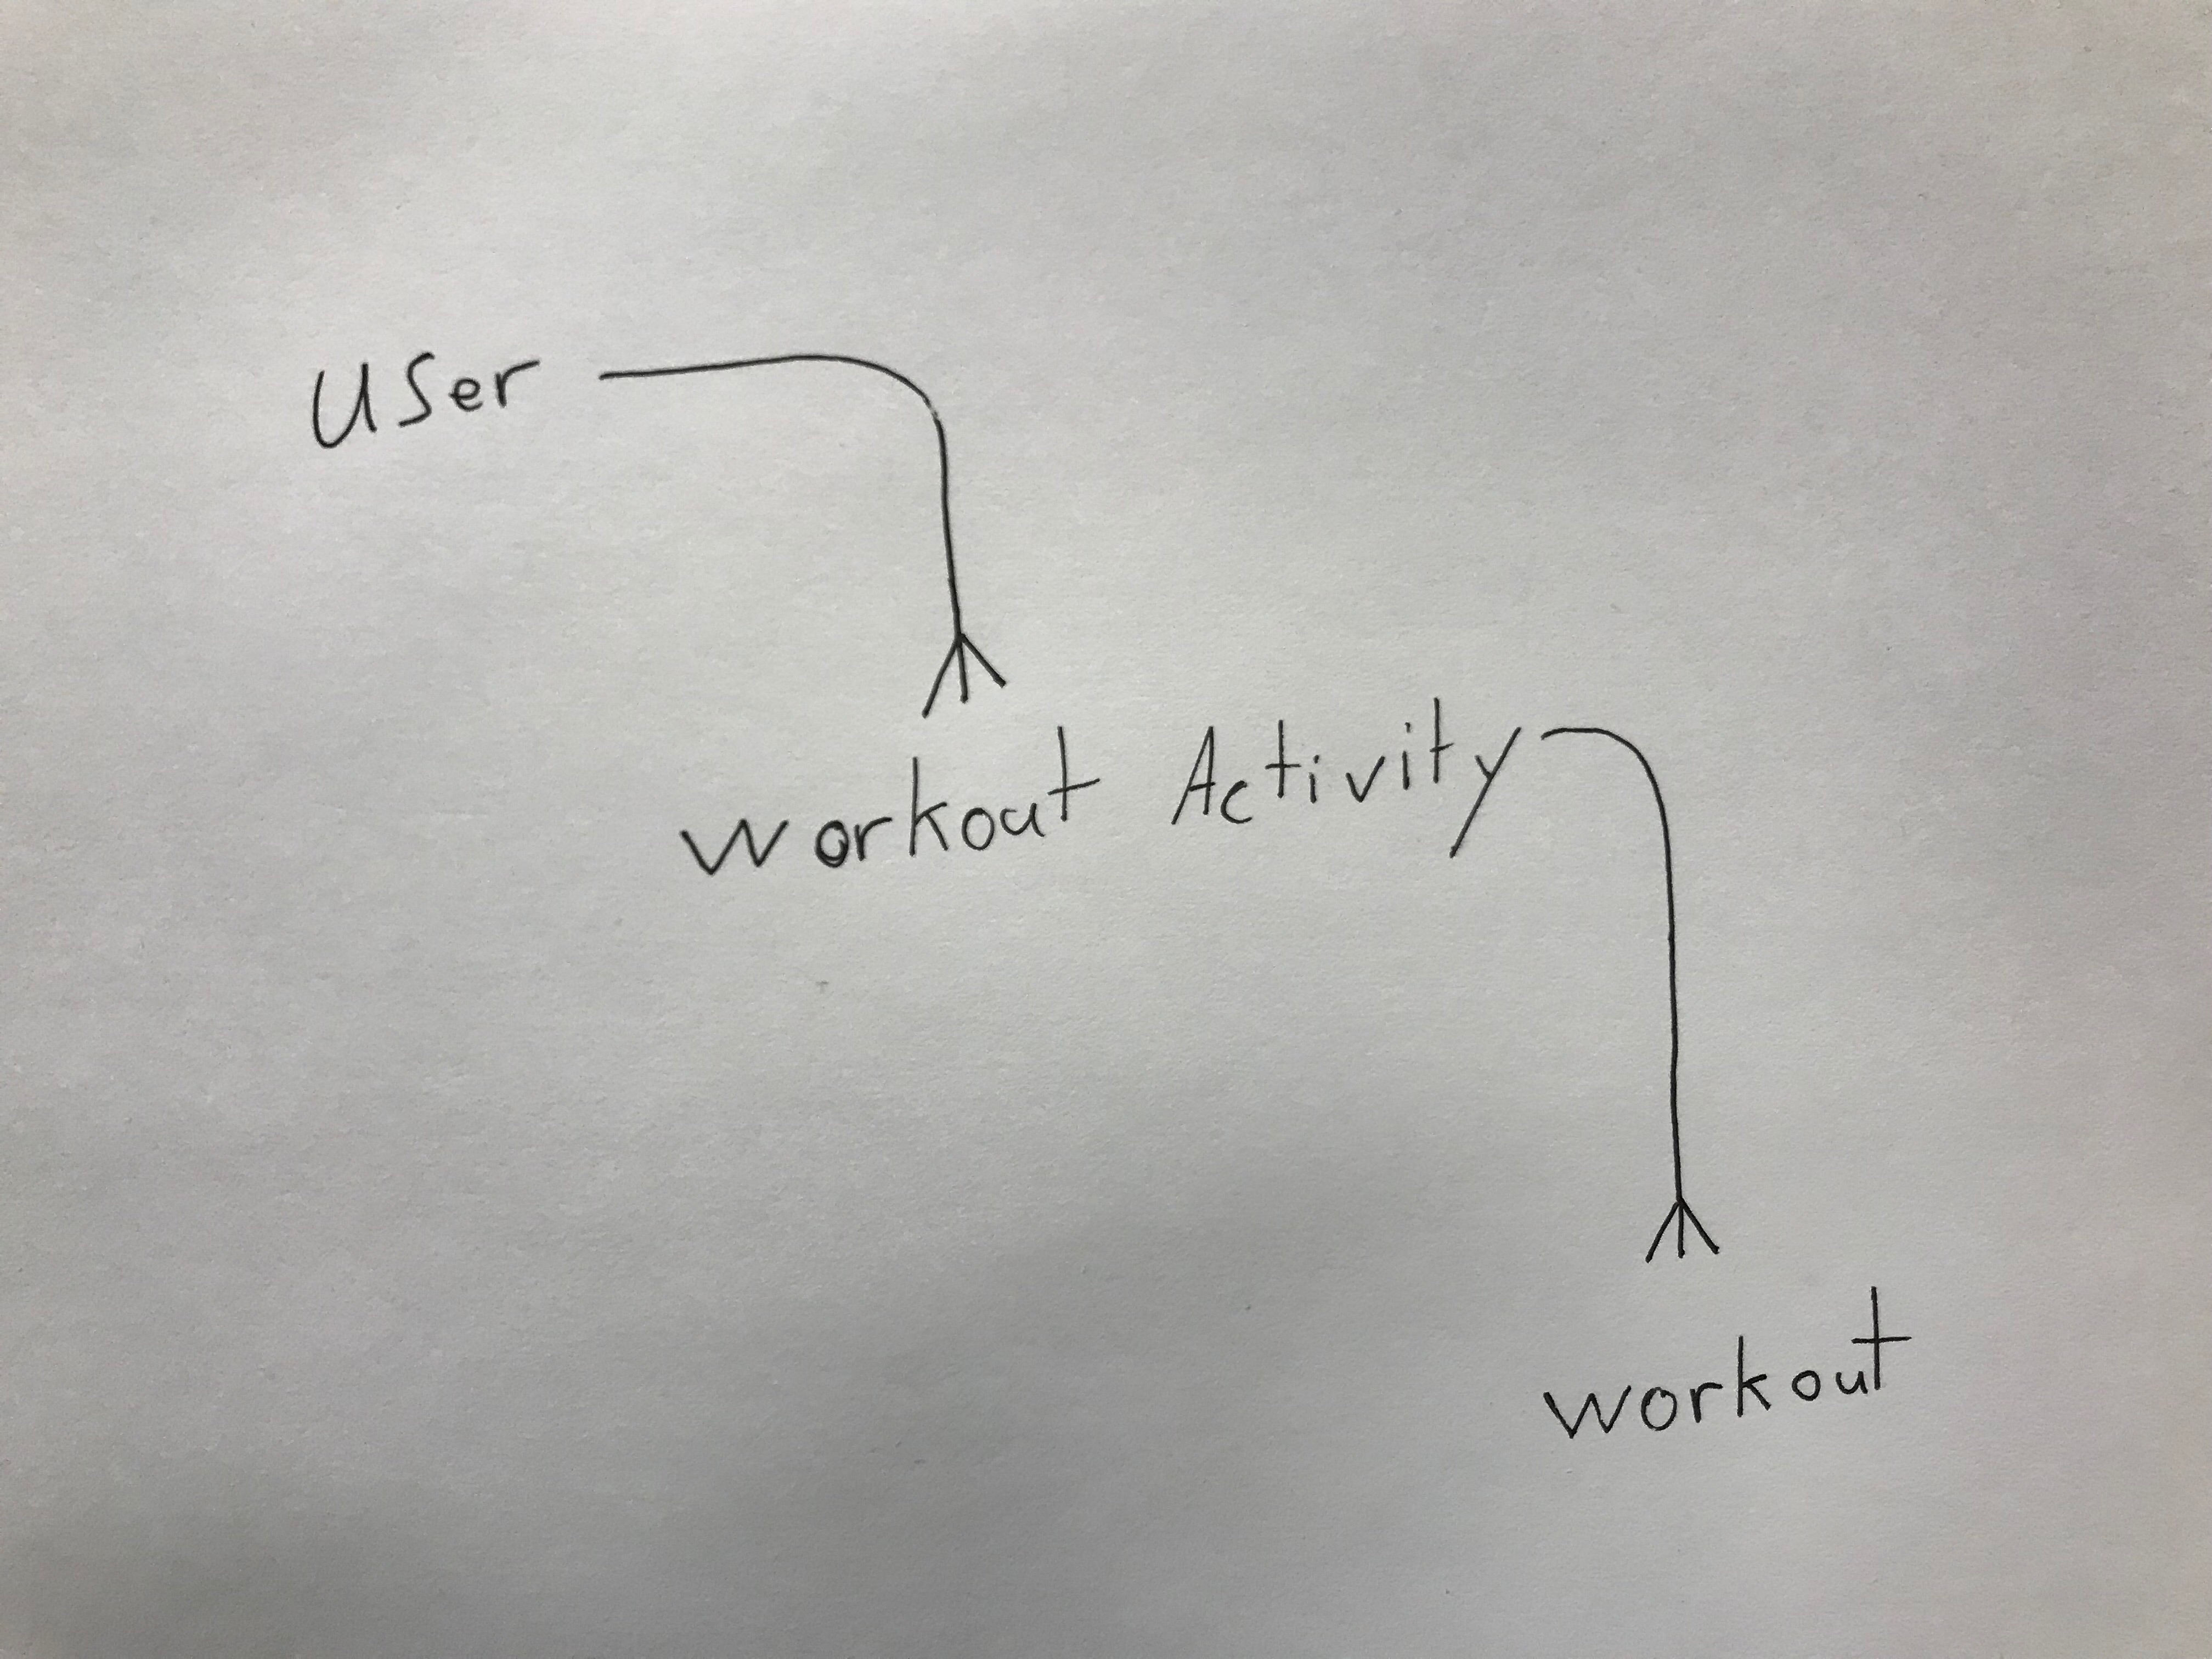 User
Workout Activity
Workout